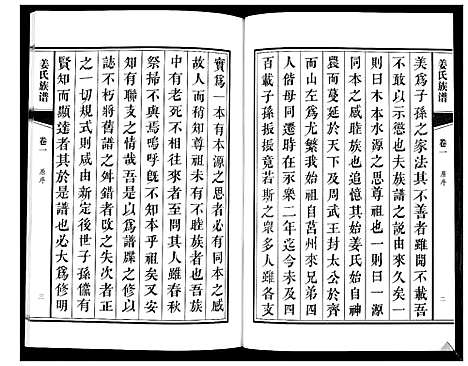 姜氏族谱
卷一
原序
二
美為子孫之家法其不善者雖聞不載吾
不敢以示懲也夫族譜之說由來久矣一
則曰木本水源之思尊祖也一則曰一源
同本之感睦族也追憶其姜氏始自神
農而蔓延於天下及周武王封太公於齊
國者尤繁我始祖自莒州來兄弟四
人偕母同遷時在永樂二年迄今五
百載子孫振振竟若斯之衆多人雖各
實為一本有本源之思者必有同本之感
故人而知尊祖未有不睦族者也吾族
中有老死不相往來者甚至同人雖春秋
祭掃不與焉嗚呼忽本乎祖矣又安
知有聯支之情哉吾姜以譜牒之修前
誌不朽將舊譜之舛錯者改之失次者正
之一切規式則咸由新定後世子孫儻有
賢知而顯達者其於是譜也必大為修明
姜氏族谱
卷一
原序
三